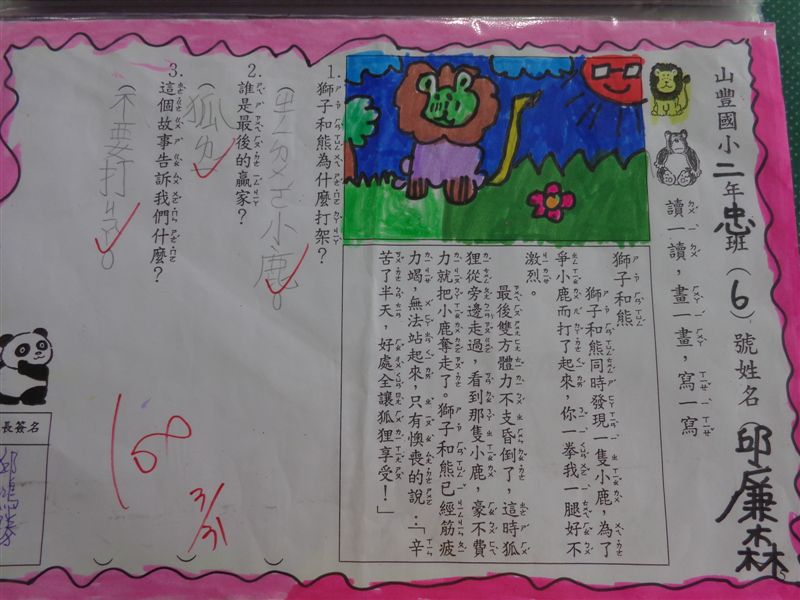 山豐國小二年忠班（6）號姓名（邱廉森
讀一讀，畫一畫，寫一寫
獅子和熊
獅子和熊同時發現一隻小鹿，為了
爭小鹿而打了起來，你一拳我一腿好不
激烈。
最後雙方體力不支昏倒了，這時狐
狸從旁邊走過，看到那隻小鹿，毫不費
力就把小鹿奪走了。獅子和熊已經筋疲
力竭，無法站起來，只有懊喪的說：「辛
苦了半天，好處全讓狐狸享受！」
1.獅子和熊為什麼打架？
小鹿。
2.誰是最後的贏家？
狐
3.這個故事告訴我們什麼？
不要打
100
3/31
長簽名